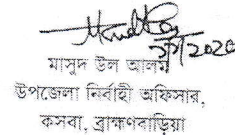 মাসুদ উল আলম
উপজেলা নির্বাহী অফিসার,
কসবা, ব্রাহ্মণবাড়িয়া